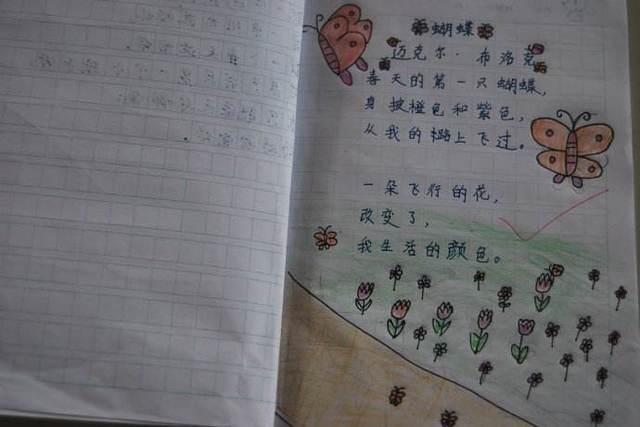 蝴蝶
迈克尔·布洛克
春天的第一只蝴蝶,
身披橙色和紫色,
从我的路上飞过。
一朵飞行的花,
改变了,
我生活的颜色。